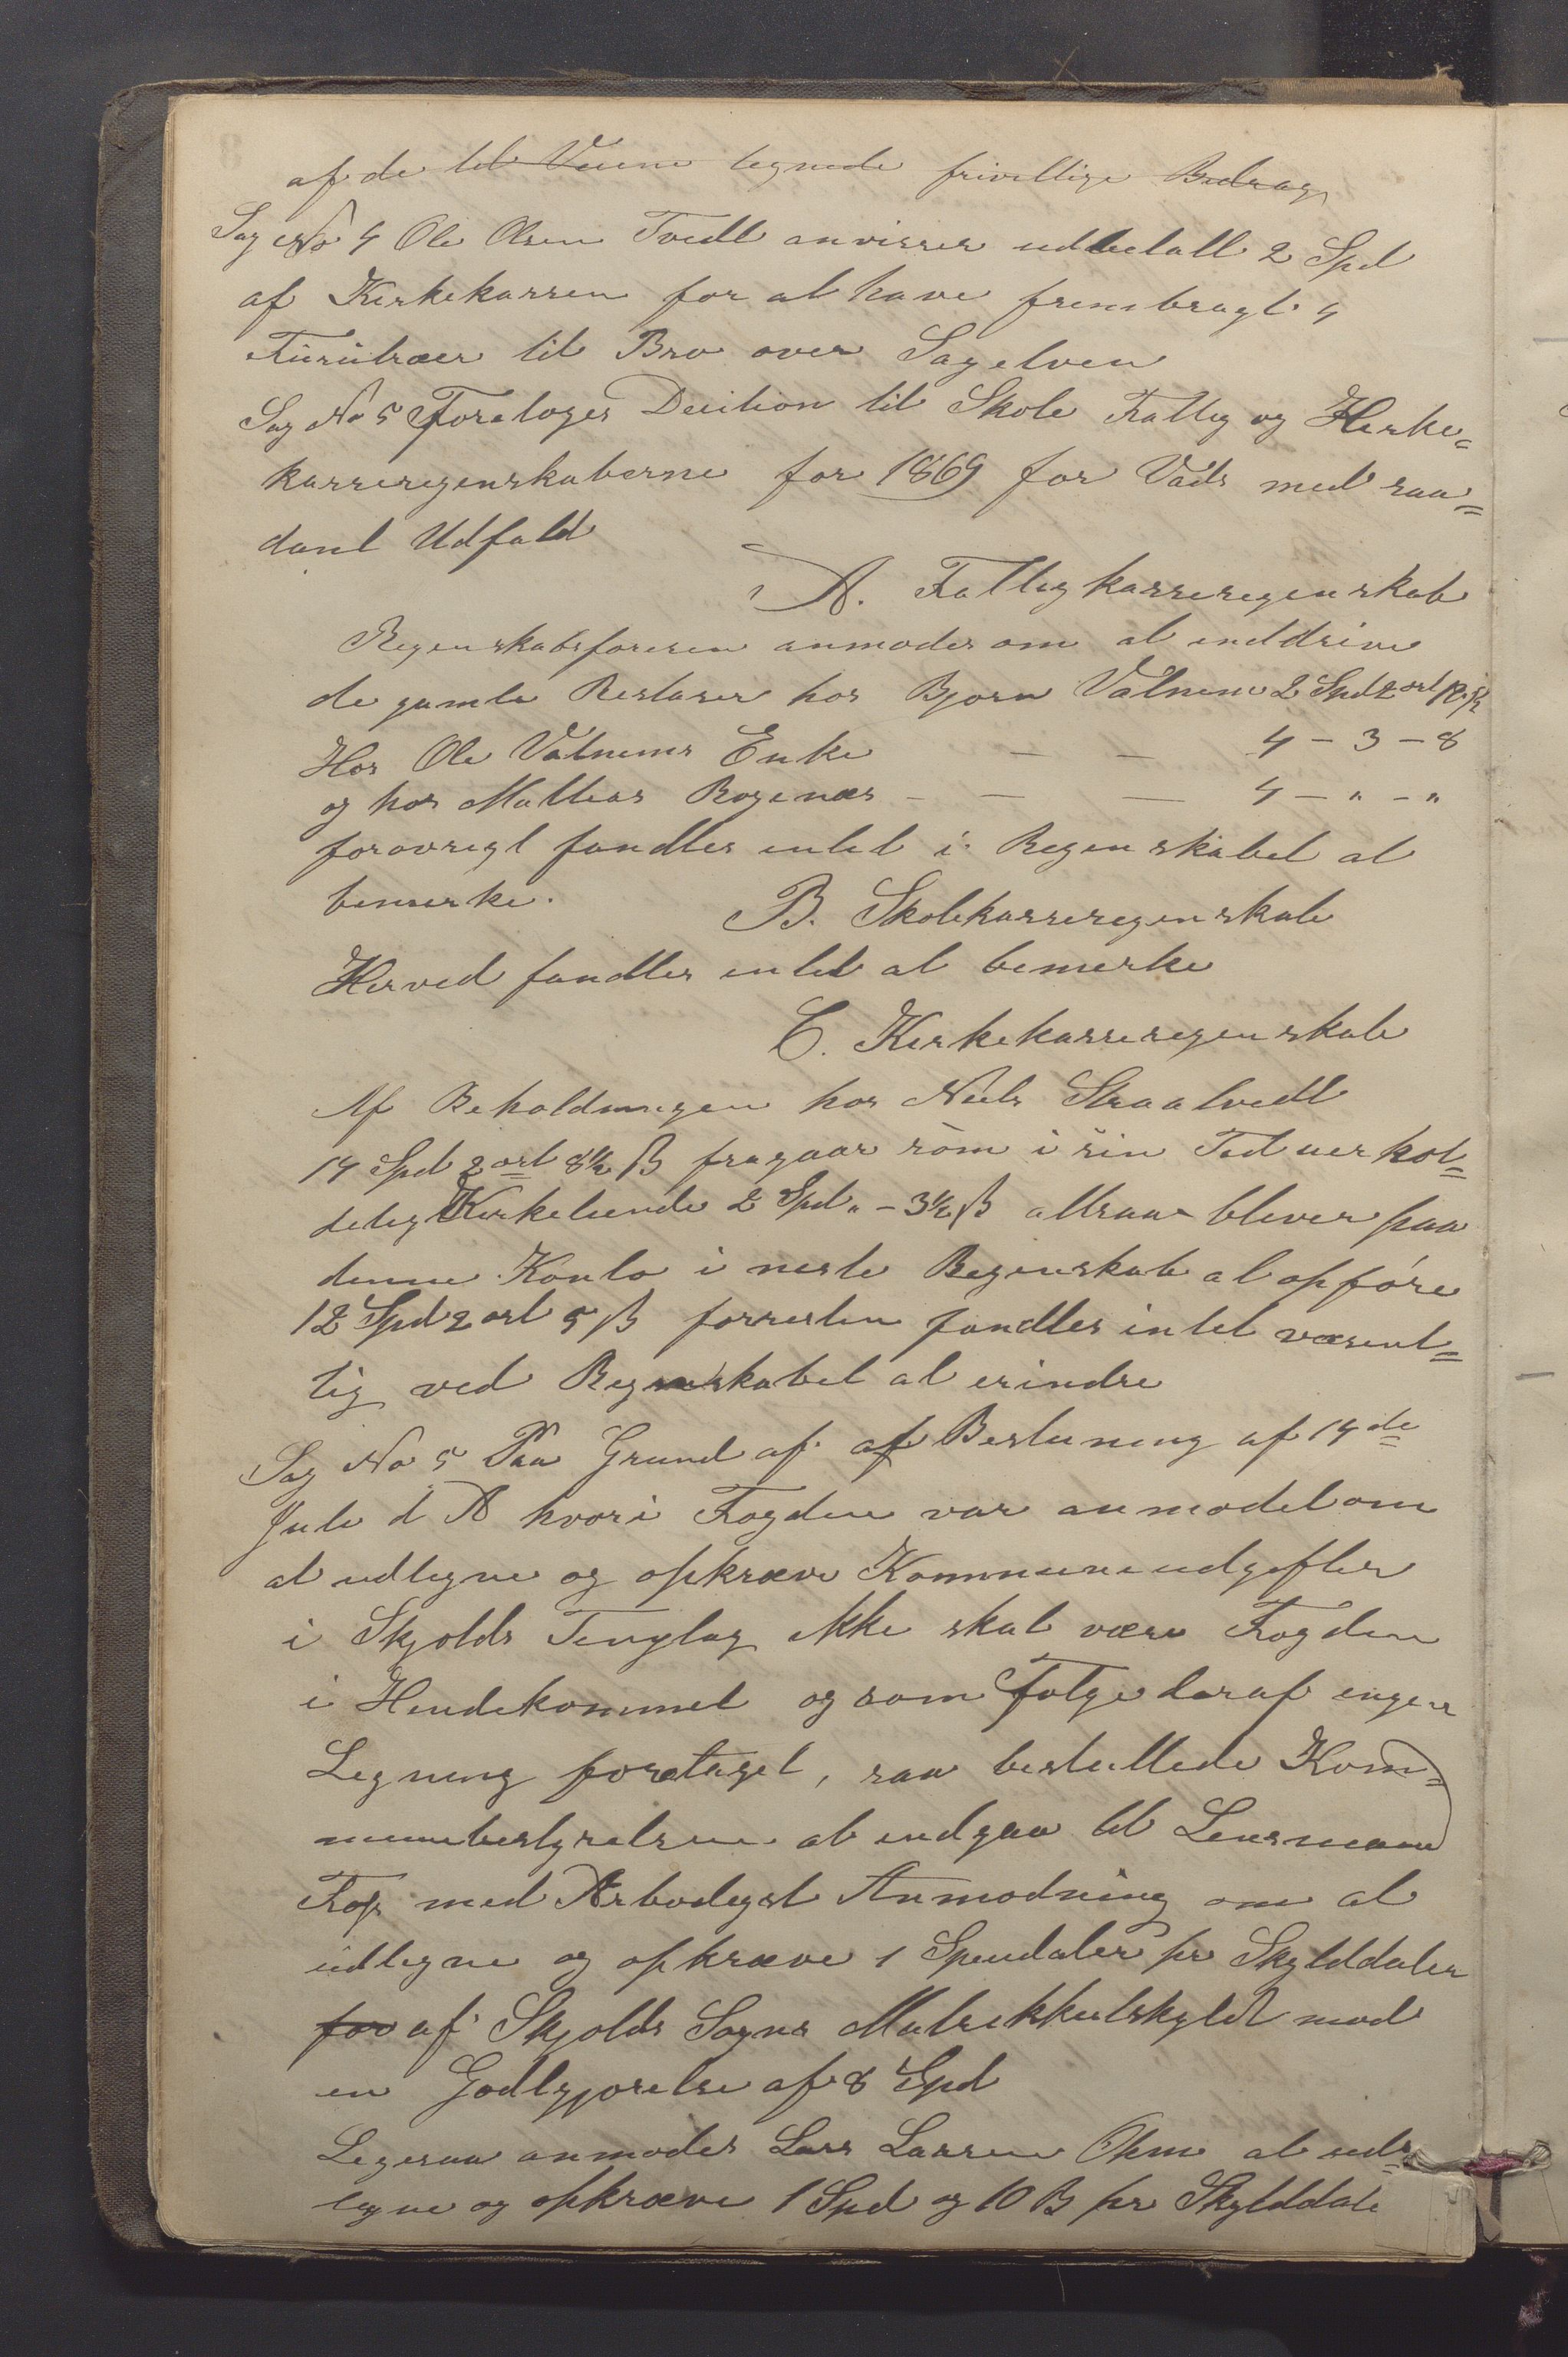 af de til Veiene tegnede frivillige Bedrag
Sag No 4 Ole Olsen Tvedt anvises udbetalt 2 Spd
af Kirkekassen for at have frembragt 4
Furutræer til Bro over Sagelven
Sag No 5 Foretoges Decition til Skole Fattig og Kirke=
kasseregenskaberne for 1869 for Vads med saa=
dant Udfald
A. Fattigkasseregenskab
Regenskabsføreren anmodes om at inddrive
de gamle Restaser hos Bjørn Vatnem 2 Spd 2 ort 12 ß
Hos Ole Vatnems Enke — — 4 - 3 - 8
og hos Mattias Rogenæs - — — 4 - " - "
forøvrigt fandtes intet i Regenskabet at
bemerke.
B. Skolekasseregenskab
Herved fandtes intet at bemerke
C. Kirkekasseregenskab
Af Beholdningen hos Niels Straatvedt
14 Spd 2 ort 8½ ß fragaar som i sin Tid uerhol=
delig Kirketiende 2 Spd " - 3½ ß altsaa bliver paa
denne Konto i neste Regenskab at opføre
12 Spd 2 ort 5 ß forresten fandtes intet væsent=
lig ved Regenskabet at erindre
Sag No 5 Paa Grund af af Beslutning af 14de
Juli d A hvori Fogden var anmodet om
at udligne og opkræve Kommuneudgifter
i Skjolds Tinglag ikke skal være Fogden
i Hendekommet og som Følge deraf ingen
Ligning foretaget, saa besluttede Kom=
munebestyrelsen at indgaa til Lensmann
med Ærbødigst Anmodning om at
udligne og opkræve 1 Speudaler pr Skylddaler
for af Skjolds Sogns Matrikkulskyld mod
en Godtgjørelse af 8 Spd
Ligesaa anmodes Lars Larsen Økne at ud=
ligne og opkræve 1 Spd og 10 ß pr Skylddale